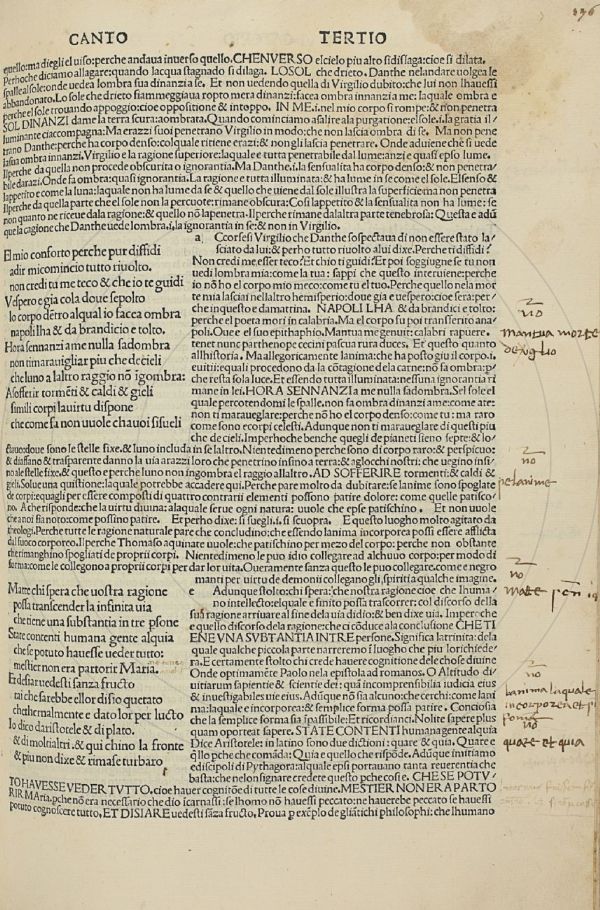 CANTO TERTIO
quello: ma diegli el uiso: perche andaua inuerso quello. CHENVERSO elcielo piu alto sidislaga: cioe si dilata.
Perhoche diciamo allagare: quando lacqua stagnado si dilaga. LOSOL che drieto. Danthe nelandare uolgea le
spalle alsole: onde uedea lombra sua dinanzi a se. Et non uedendo quella di Virgilio dubito: che lui non lhauessi
abbandonato. Lo sole che drieto fiammeggiaua ropto mera dinanzi: facea ombra innanzi a me: laquale ombra e
perche el sole trouando appoggio: cioe oppositione & intoppo. IN ME. i. nel mio corpo si rompe: & non penetra
SOL DINANZI dame la terra scura: aombrata. Quando cominciamo a salire ala purgatione: el sole. i. la gratia il
luminante ci accompagna: Ma erazzi suoi penetrano Virgilio in modo: che non lascia ombra di se. Ma non pene
trano Danthe: perche ha corpo denso: col quale ritiene erazi: & non gli lascia penetrare. Onde aduiene che si uede
lasua ombra innanzi. Virgilio e la ragione superiore: laquale e tutta penetrabile dal lume: anzi e quasi epso lume.
Ilperche da quella non procede obscurita o ignorantia. Ma Danthe. i. la sensualita ha corpo denso: & non penetra
bile darazi. Onde fa ombra: quasi ignorantia. La ragione e tutta illuminata: & ha lume in se come el sole. El senso &
lappetito e come la luna: laquale non ha lume da se & quello che uiene dal sole illustra la superficie ma non penetra
Ilperche da quella parte che el sole non la percuote: rimane obscura: Cosi lappetito & la sensualita non ha lume: se
non quanto ne riceue dala ragione: & quello nõ la penetra. Ilperche rimane dalaltra parte tenebrosa: Questa e adũ
que la cagione che Danthe uede lombra. i. la ignorantia in se: & non in Virgilio.
El mio conforto perche pur diffidi
adir micomincio tutto riuolto.
non credi tu me teco & che io te guidi
Vespero e gia cola doue sepolto
lo corpo dẽtro alqual io facea ombra
napoli lha & da brandicio e tolto.
Hora sennanzi ame nulla sadombra
non ti marauigliar piu che decieli
che luno a laltro raggio nõ igombra:
A sofferir tormẽti & caldi & gieli
simili corpi la uirtu dispone
che come fa non uuole chauoi si sueli
a Ccorsesi Virgilio che Danthe sospectaua di non essere stato la
sciato da lui: & perho tutto riuolto alui dixe. Perche ti diffidi?
Non credi me esser teco? Et chio ti guidi? Et poi soggiugne se tu non
uedi lombra mia: come la tua: sappi che questo interuiene: perche
io nõ ho el corpo mio meco: come tu el tuo. Perche quello nela mor
te mia lasciai nellaltro hemisperio: doue gia e uespero: cioe sera: per
che in questo e damattina. NAPOLI LHA & da brandici e tolto:
perche el poeta mori in calabria. Ma el corpo su poi transferito ana
poli. Oue e el suo epithaphio. Mantua me genuit: calabri rapuere.
tenet nunc parthenope: cecini pascua rura duces. Et questo quanto
allhistoria. Ma allegoricamente lanima: che ha posto giu il corpo. i.
euitii: equali procedono da la cõtagione dela carne: nõ sa ombra: p
che resta sola luce. Et essendo tutta illuminata: nessuna ignorantia ri
mane in lei. HORA SENNANZI a me nulla sadombra. Sel sole el
quale percotendomi le spalle. non sa ombra dinanzi ame: come are:
non ti marauegliare: perche nõ ho el corpo denso: come tu: ma raro
come sono ecorpi celesti. Adunque non ti marauegliare di questi piu
che de cieli. Imperhoche benche quegli de pianeti sieno septe: & lo
ctauo: doue sono le stelle fixe. & luno includa in se laltro. Nientedimeno perche sono di corpo raro: & perspicuo:
& diaffano & trasparente danno la uia arazzi loro che penetrino insino a terra: & agliocchi nostri: che uegino insi
no ale stelle fixe. & questo e perche luno non ingombra el raggio allaltro. AD SOFFERIRE tormenti: & caldi &
gieli. Solue una quistione: la quale potrebbe accadere qui. Perche pare molto da dubitare: se lanime sono spogliate
de corpi: equagli per essere composti di quattro contrarii elementi possono patire dolore: come quelle patisco
no. A che risponde: che la uirtu diuina: alaquale serue ogni natura: uuole che epse patischino. Et non uuole
che a noi sia noto: come possino patire. Et perho dixe: si suegli. i. si scuopra. E questo luogho molto agitato da
theologi. Perche tutte le ragione naturale pare che concludino: che essendo lanima incorporea possi essere afflicta
dal fuoco corporeo. Il perche Thomaso aquinate uuole: che patischino per mezo del corpo: perche non obstante
che rimanghino spogliati de proprii corpi. Nientedimeno le puo idio collegare ad alchuuo corpo: per modo di
forma: come le collegono a proprii corpi per dar lor uita. Oueramente sanza questo le puo collegare: come e negro
manti per uirtu de demonii collegano gli spiriti a qualche imagine.
Matte chi spera che uostra ragione
possa transcender la infinita uia
che tiene una substantia in tre psone
State contenti humana gente alquia
che se potuto hauesse ueder tutto:
mestier non era partorir Maria.
Et desiar uedesti sanza fructo
tai che sarebbe ellor disio quetato
che thernalmente e dato lor per lucto
Io dico daristotele & di plato.
& di molti altri. & qui chino la fronte
& piu non dixe & rimase turbaro
e Adunque stolto: chi spera: che nostra ragione cioe che lhuma/
no intellecto: elquale e finito possa trascorrer: col discorso della
sua ragione arriuare al fine dela uia didio: & ben dixe uia. Imper che
quello discorso dela ragione: che arriua ale conclusione CHE TI
ENE VNA SVBTANTIA INTRE persone. Significa la trinita: dela
quale qualche piccola parte narreremo ĩ luogho che piu lorichiede
ra. E certamente stolto chi crede hauere cognitione dele chose diuine
Onde optimamẽte Paolo nela epistola ad romanos. O Altitudo di
uitiarum sapientie & scientie dei: quã incomprensibilia iudicia eius
& inuestigabiles uie eius. Adũque nõ sia alcuno che cerchi: come lani
ma: laquale e incorporea: & semplice forma possa patire. Conciosia
che la semplice forma sia ĩpassibile: Et ricordianci. Nolite sapere plus
quam oporteat sapere. STATE CONTENTI humana gente alquia
Dice Aristotele: in latino sono due dictioni: quare & quia. Quare e
qllo pche che comãda: Quia e quello che rispõde. Adũque imitiamo
e discipoli di Pythagora: alquale epsi portauano tanta reuerentia che
basta: che nelon signare credere questo pche cosi e. CHE SE POTV/
TO HAVESSE VEDER TVTTO. cioe hauer cognitiõe di tutte le cose diuine. MESTIER NON ERA PARTO
RIR MAria. pche nõ era necessario che dio icarnassi: se lhomo nõ hauessi peccato: ne hauerebe peccato se hauessi
potuto cognoscere tutto, ET DISIARE uedesti sãza fructo, Proua p exẽplo de gliãtichi philosophi: che lhumano
nõ
mantua morte
de uglio
nõ
pel anime
nõ
nõ
lanima laquale
incorporea et pi
nõ
quare et quia